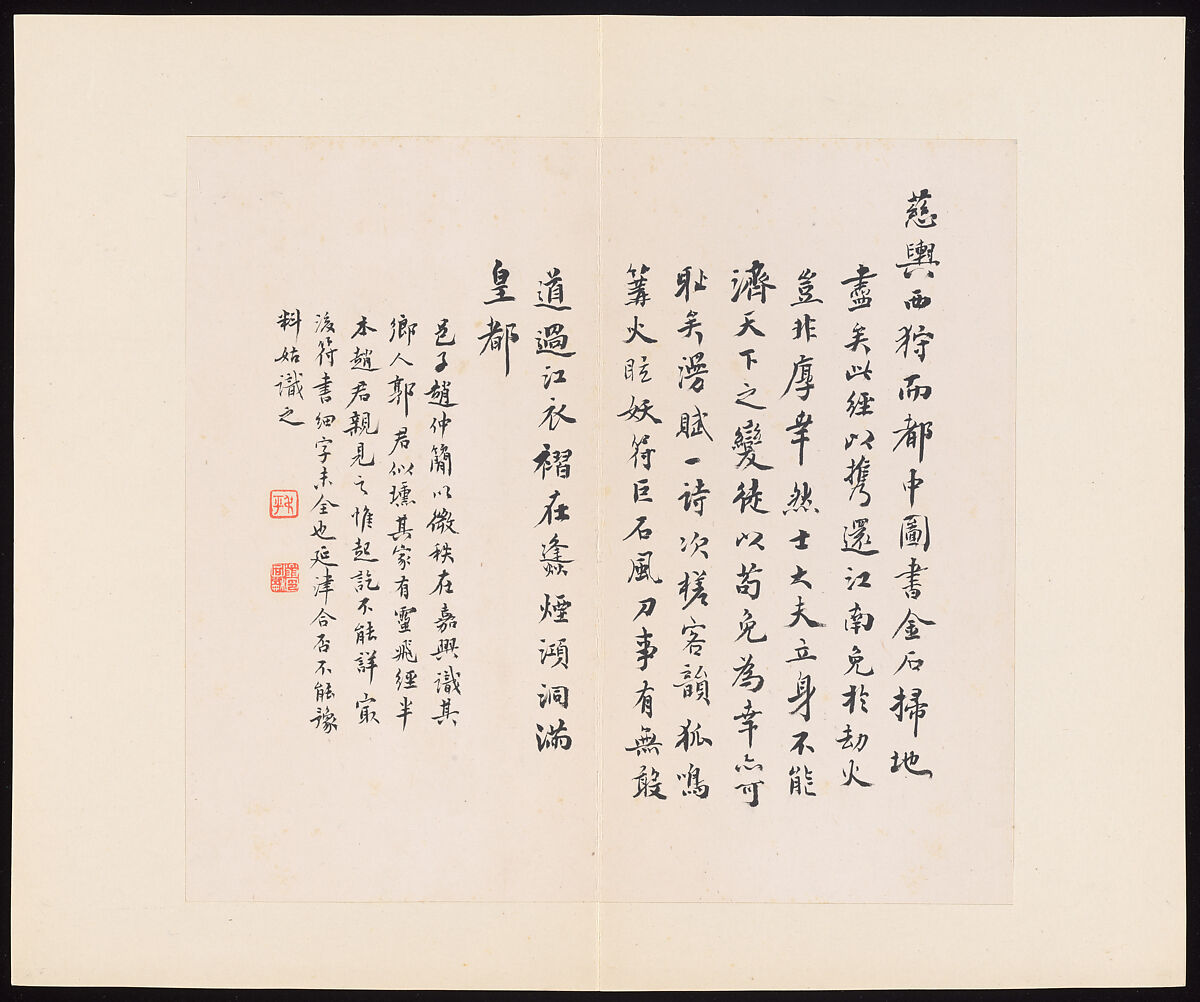 慈輿西狩而都中圖書金石掃地
盡矣此經以攜還江南免於劫火
豈非厚幸然士大夫立身不能
濟天下之變徒以苟免為幸亦可
恥矣漫賦一詩次槎客韻狐鳴
篝火眩妖符巨石風刀事有無敢
道過江衣褶在蓬煙澒洞滿
皇都
邑子趙仲簡以微秩在嘉興識其
鄉人郭君似壎其家有靈飛經半
本趙君親見之惟起訖不能詳冣
後符書細字未全也延津合否不能豫
料姑識之